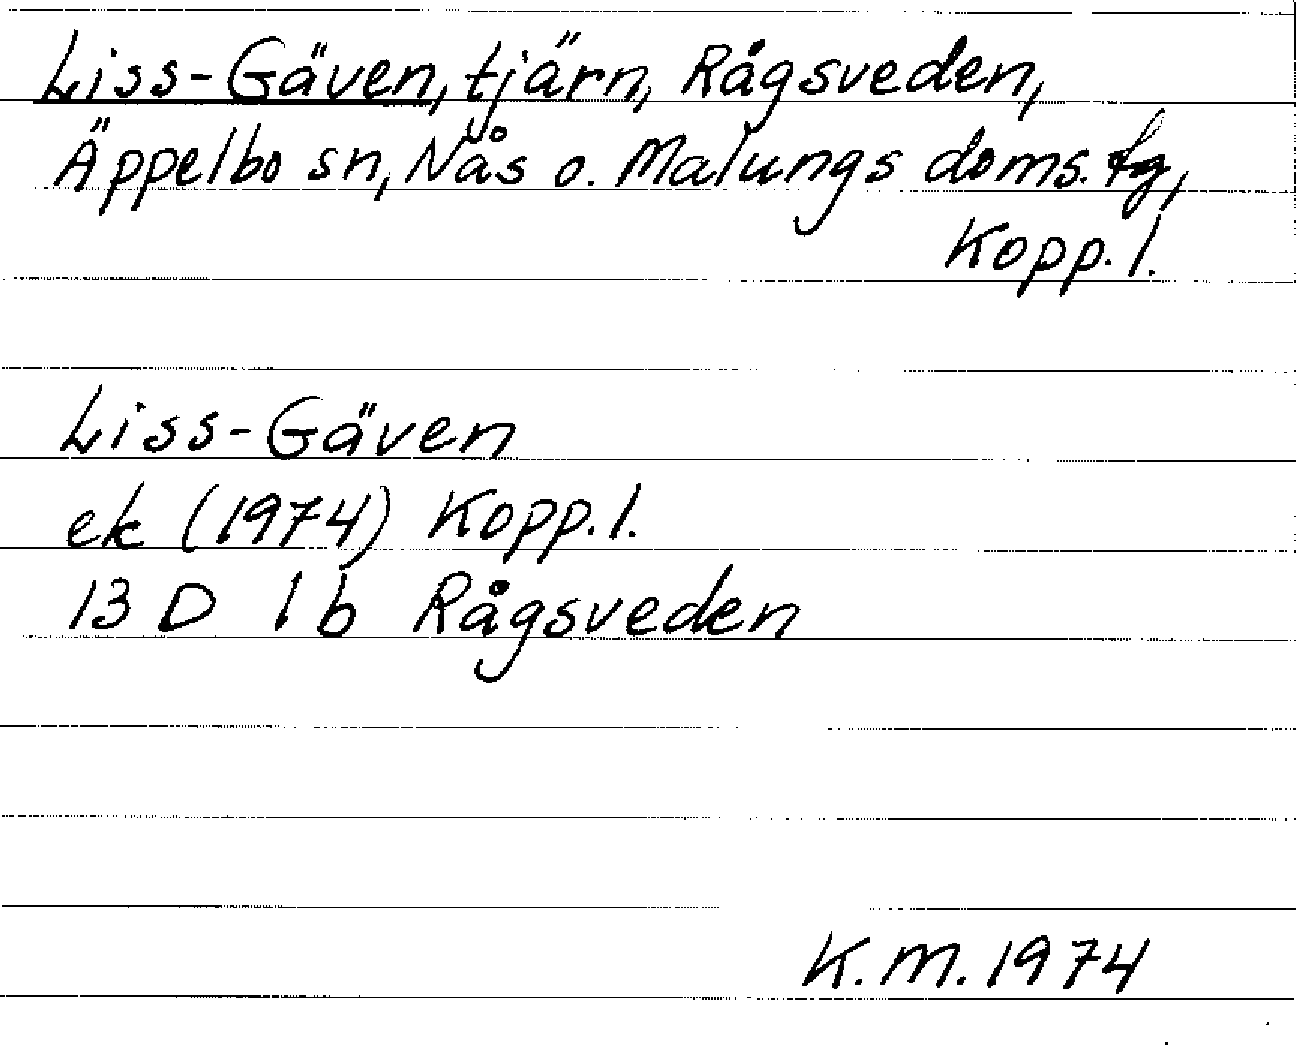 Liss-Gäven, tjärn, Rågsveden,
Äppelbo sn, Nås o. Malungs doms. fg,
Kopp. l.
Liss-Gäven
ek (1974) Kopp. l.
13 D 1 b Rågsveden
K.M. 1974